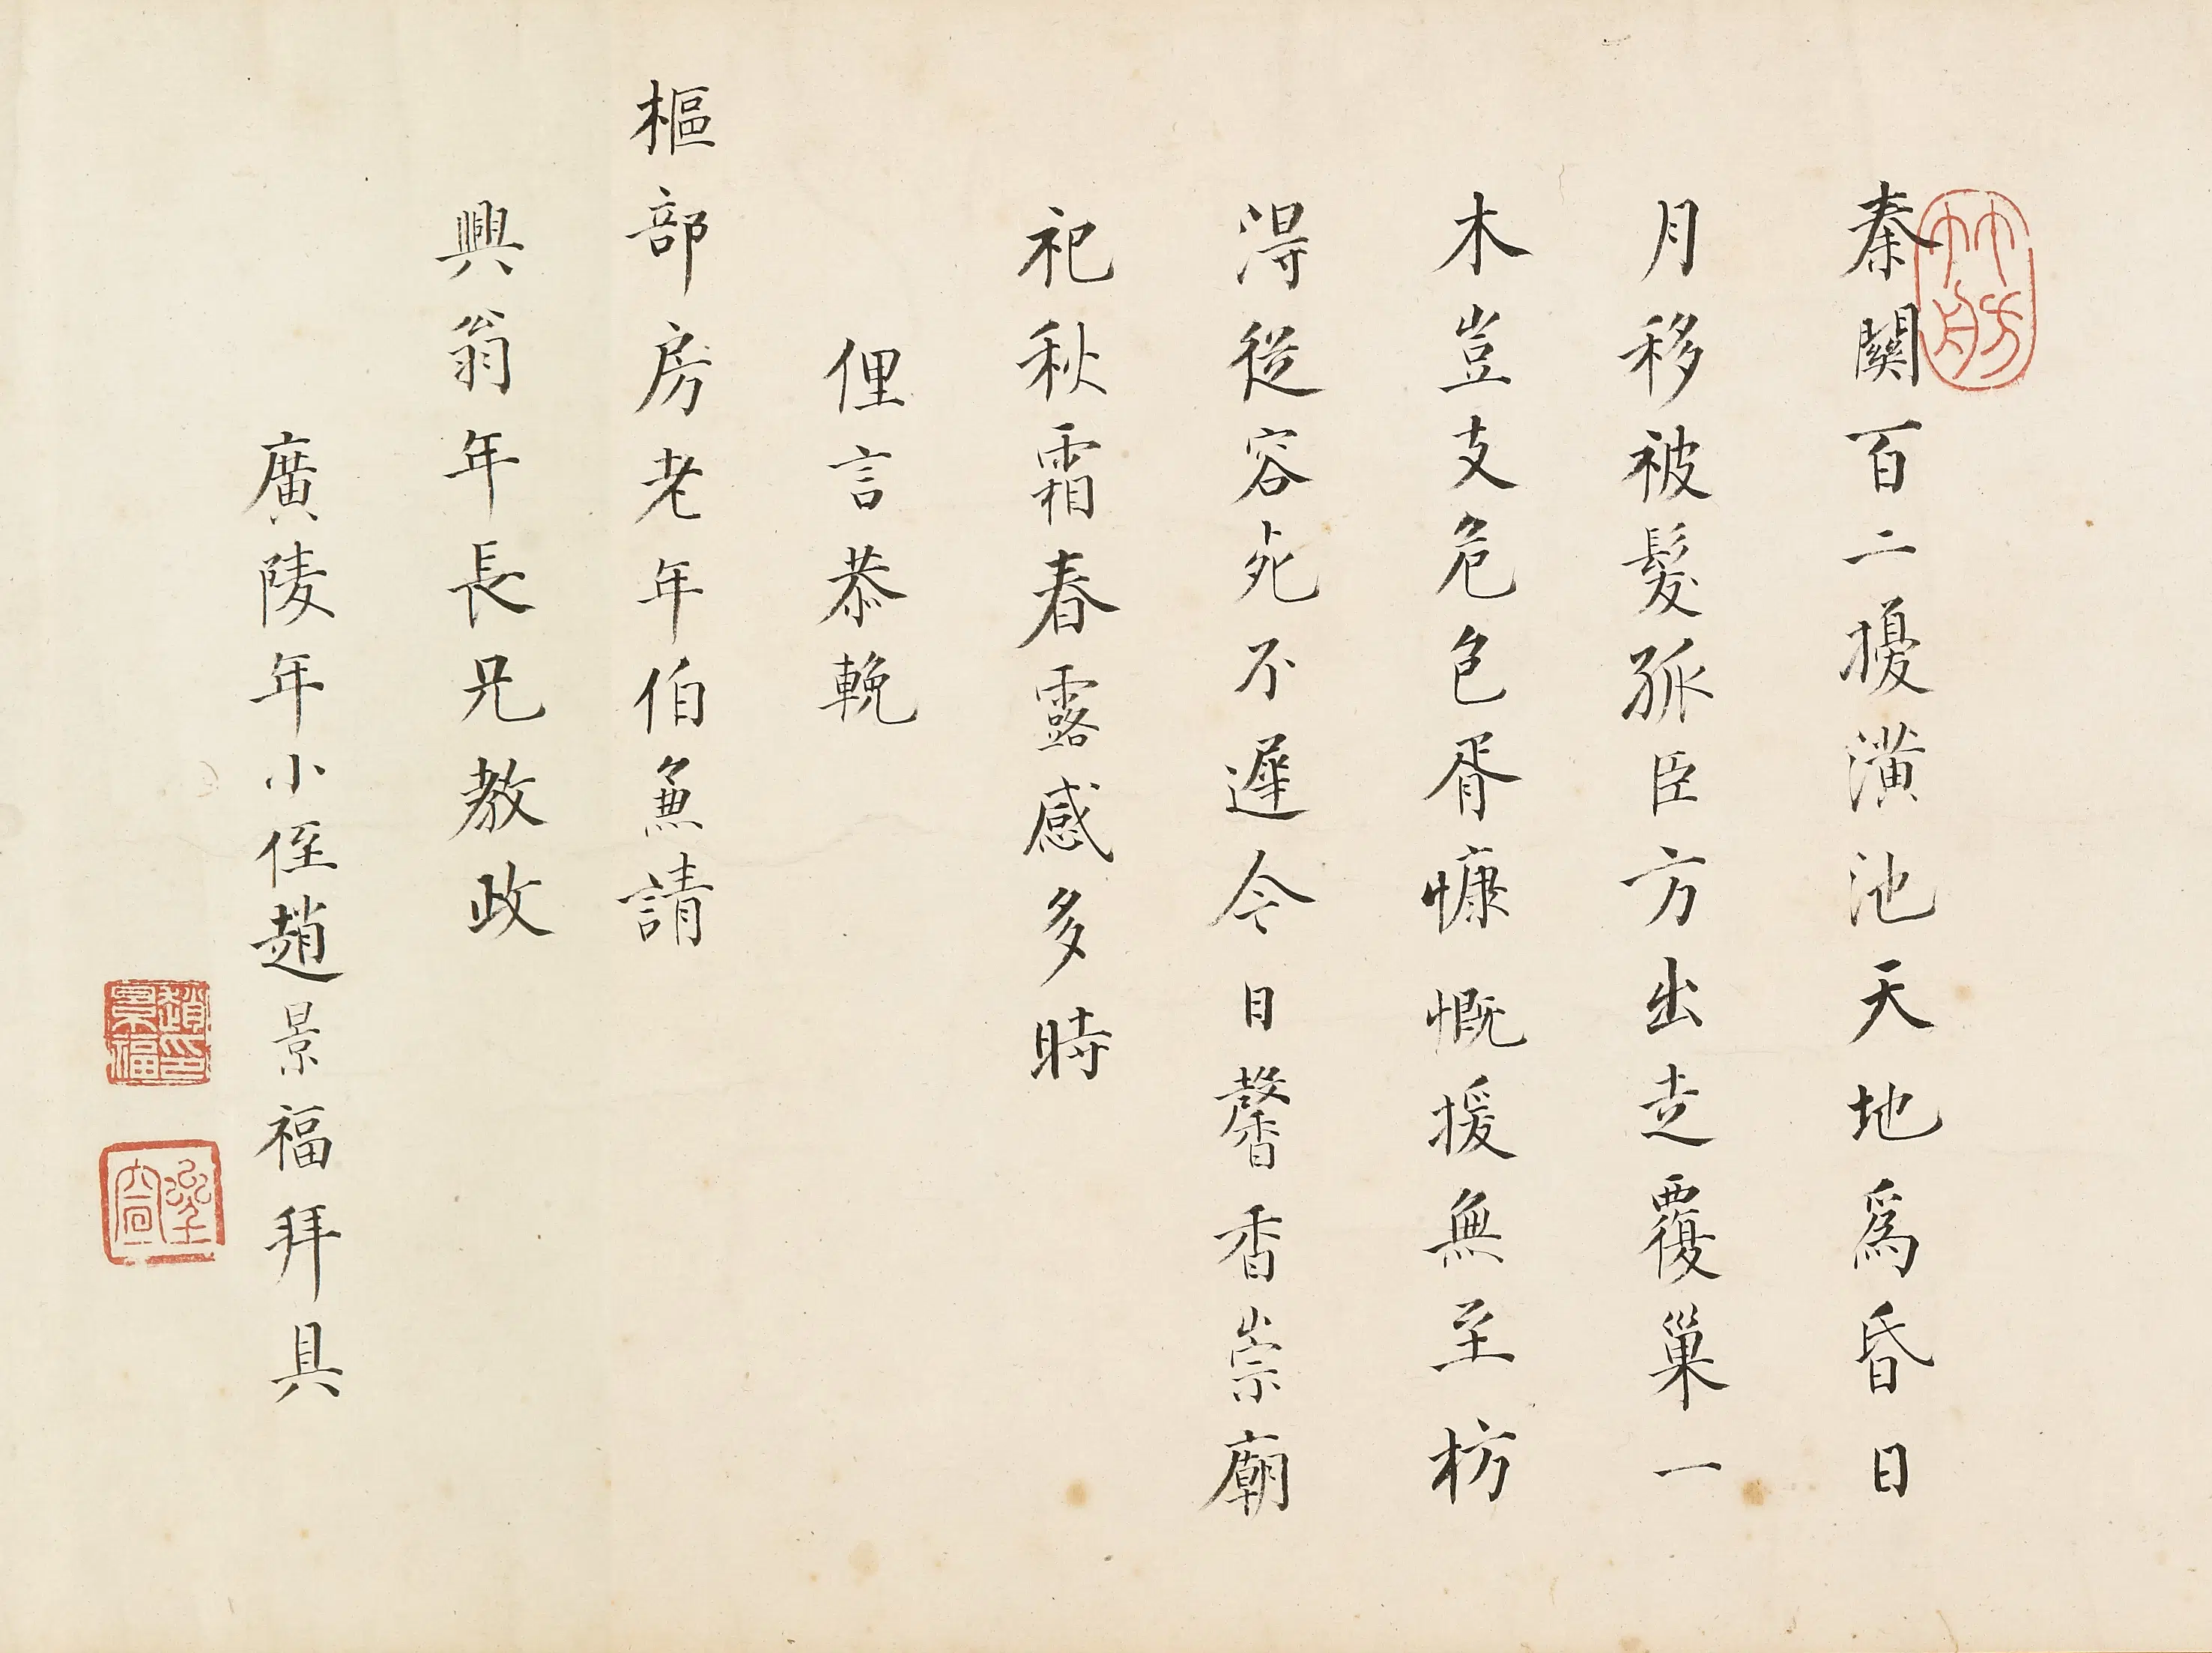 秦關百二擾潢池天地爲昏日
月移被髮孤臣方出走覆巢一
木豈支危色胥慷慨援無至枋
得從容死不遲今日馨香崇廟
祀秋霜春露感多時
俚言恭輓
樞部房老年伯兼請
興翁年長兄教政
廣陵年小侄趙景福拜具
趙景福印